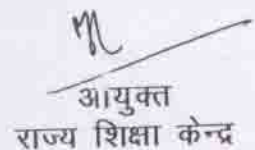 आयुक्त
राज्य शिक्षा केन्द्र